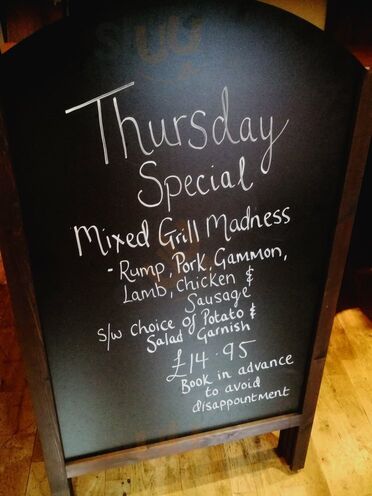 Thursday
Special
Mixed Grill Madness
- Rump, Pork, Gammon,
Lamb, chicken &
Sausage
s/w choice of Potato &
Salad Garnish
£14.95
Book in advance
to avoid
disappointment